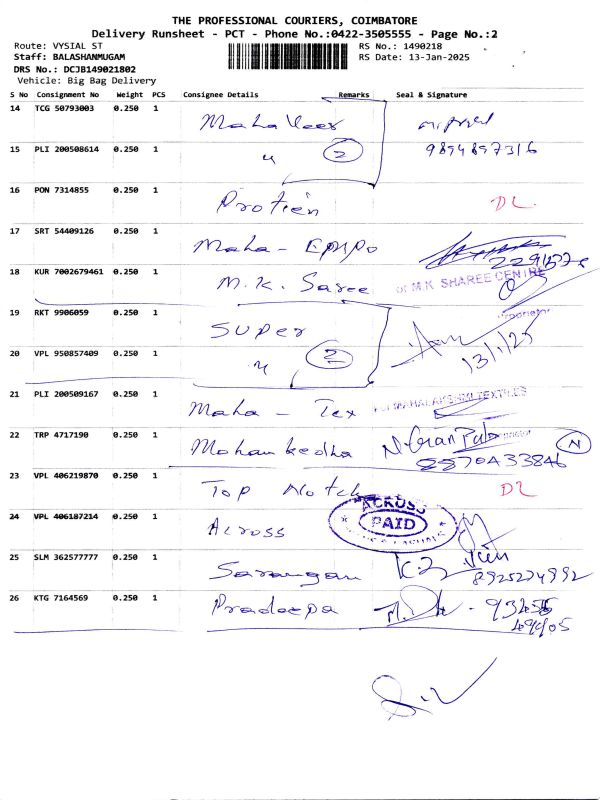 THE PROFESSIONAL COURIERS, COIMBATORE
Delivery Runsheet - PCT - Phone No.:0422-3505555 - Page No.:2
Route: VYSIAL ST RS No.: 1490218
Staff: BALASHANMUGAM RS Date: 13-Jan-2025
DRS No.: DCJB149021802
Vehicle: Big Bag Delivery
S No Consignment No Weight PCS Consignee Details Remarks Seal & Signature
14 TCG 50793003 0.250 1 Maha Veer
15 PLI 200508614 0.250 1 " 2 9894897316
16 PON 7314855 0.250 1 Protien DL
17 SRT 54409126 0.250 1 Maha - Expo
18 KUR 7002679461 0.250 1 M.K. Saree M.K SHAREE CENTRE
19 RKT 9906059 0.250 1 Super
20 VPL 950857409 0.250 1 " 2 13/1/25
21 PLI 200509167 0.250 1 Maha - Tex MAHALAKSHMI TEXTILES
22 TRP 4717190 0.250 1 Mohan kedha N
23 VPL 406219870 0.250 1 Top Notch DL
24 VPL 406187214 0.250 1 Across ACROSS PAID
25 SLM 362577777 0.250 1 Sarangan 8925224992
26 KTG 7164569 0.250 1 Pradeepa